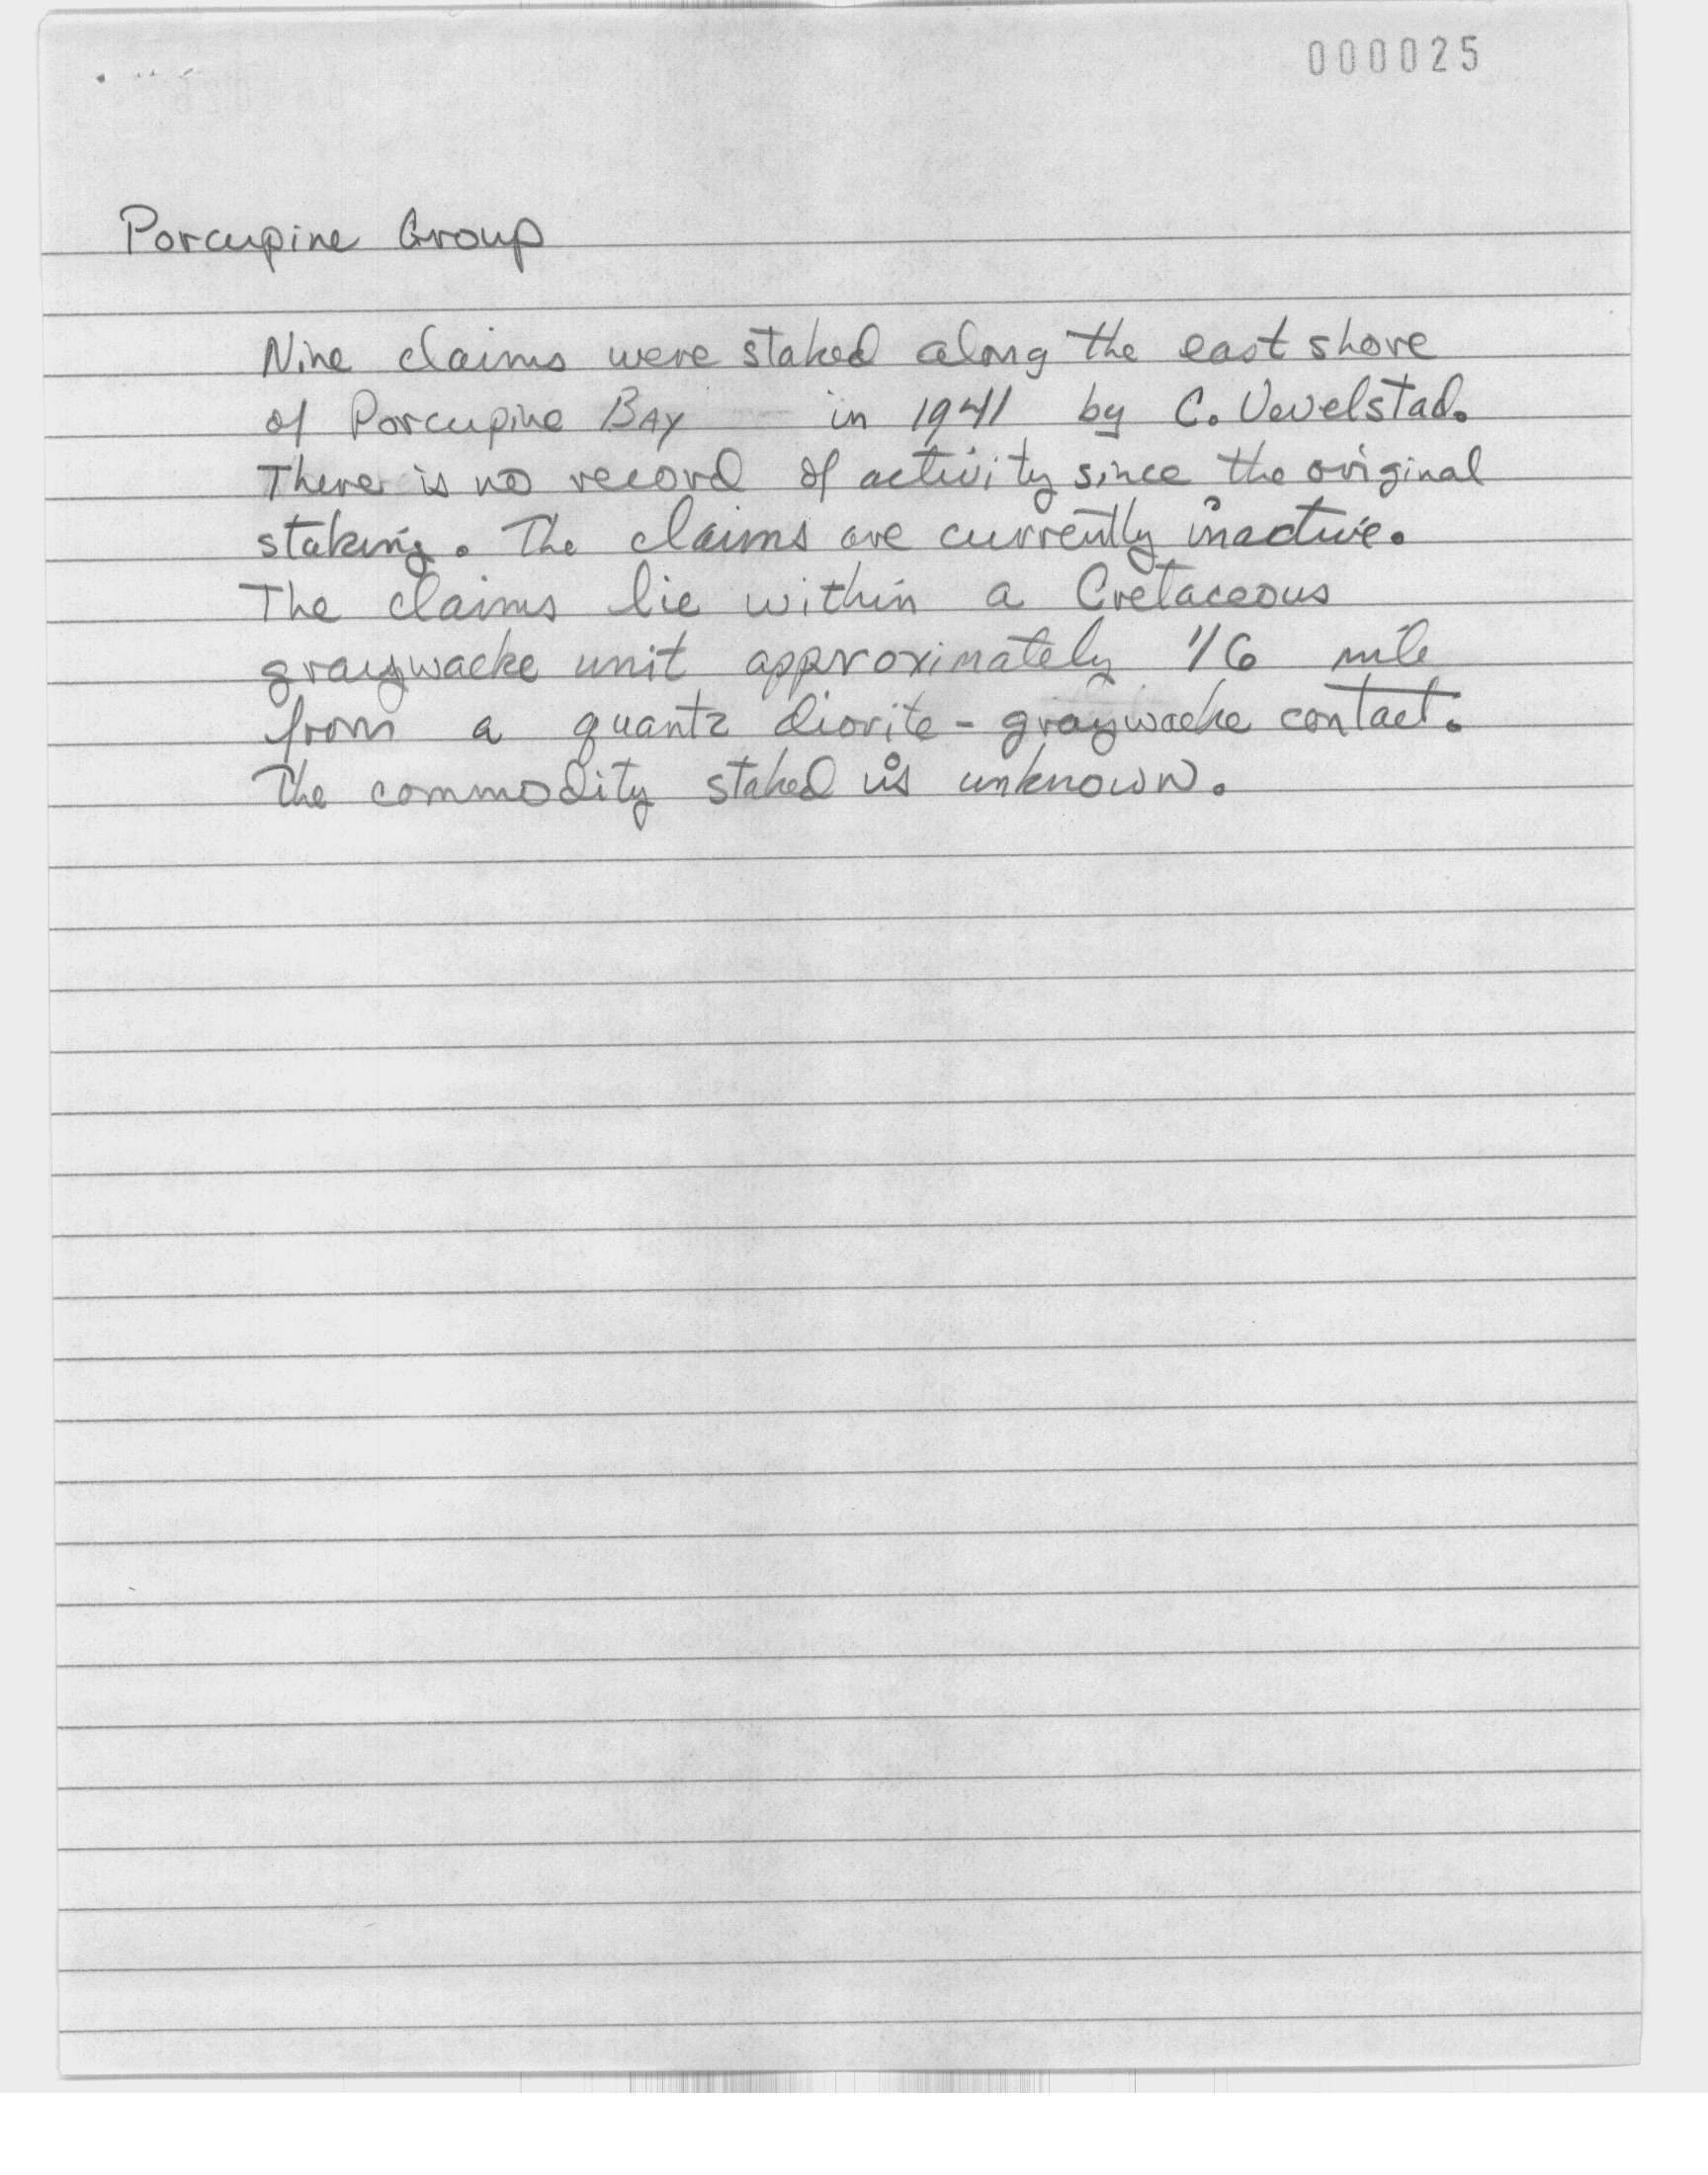 000025
Porcupine Group
Nine claims were staked along the east shore
of Porcupine BAY in 1941 by C. Vevelstad.
There is no record of activity since the original
staking. The claims are currently inactive.
The claims lie within a Cretaceous
graywacke unit approximately 1/6 mile
from a quartz diorite - graywacke contact.
The commodity staked is unknown.